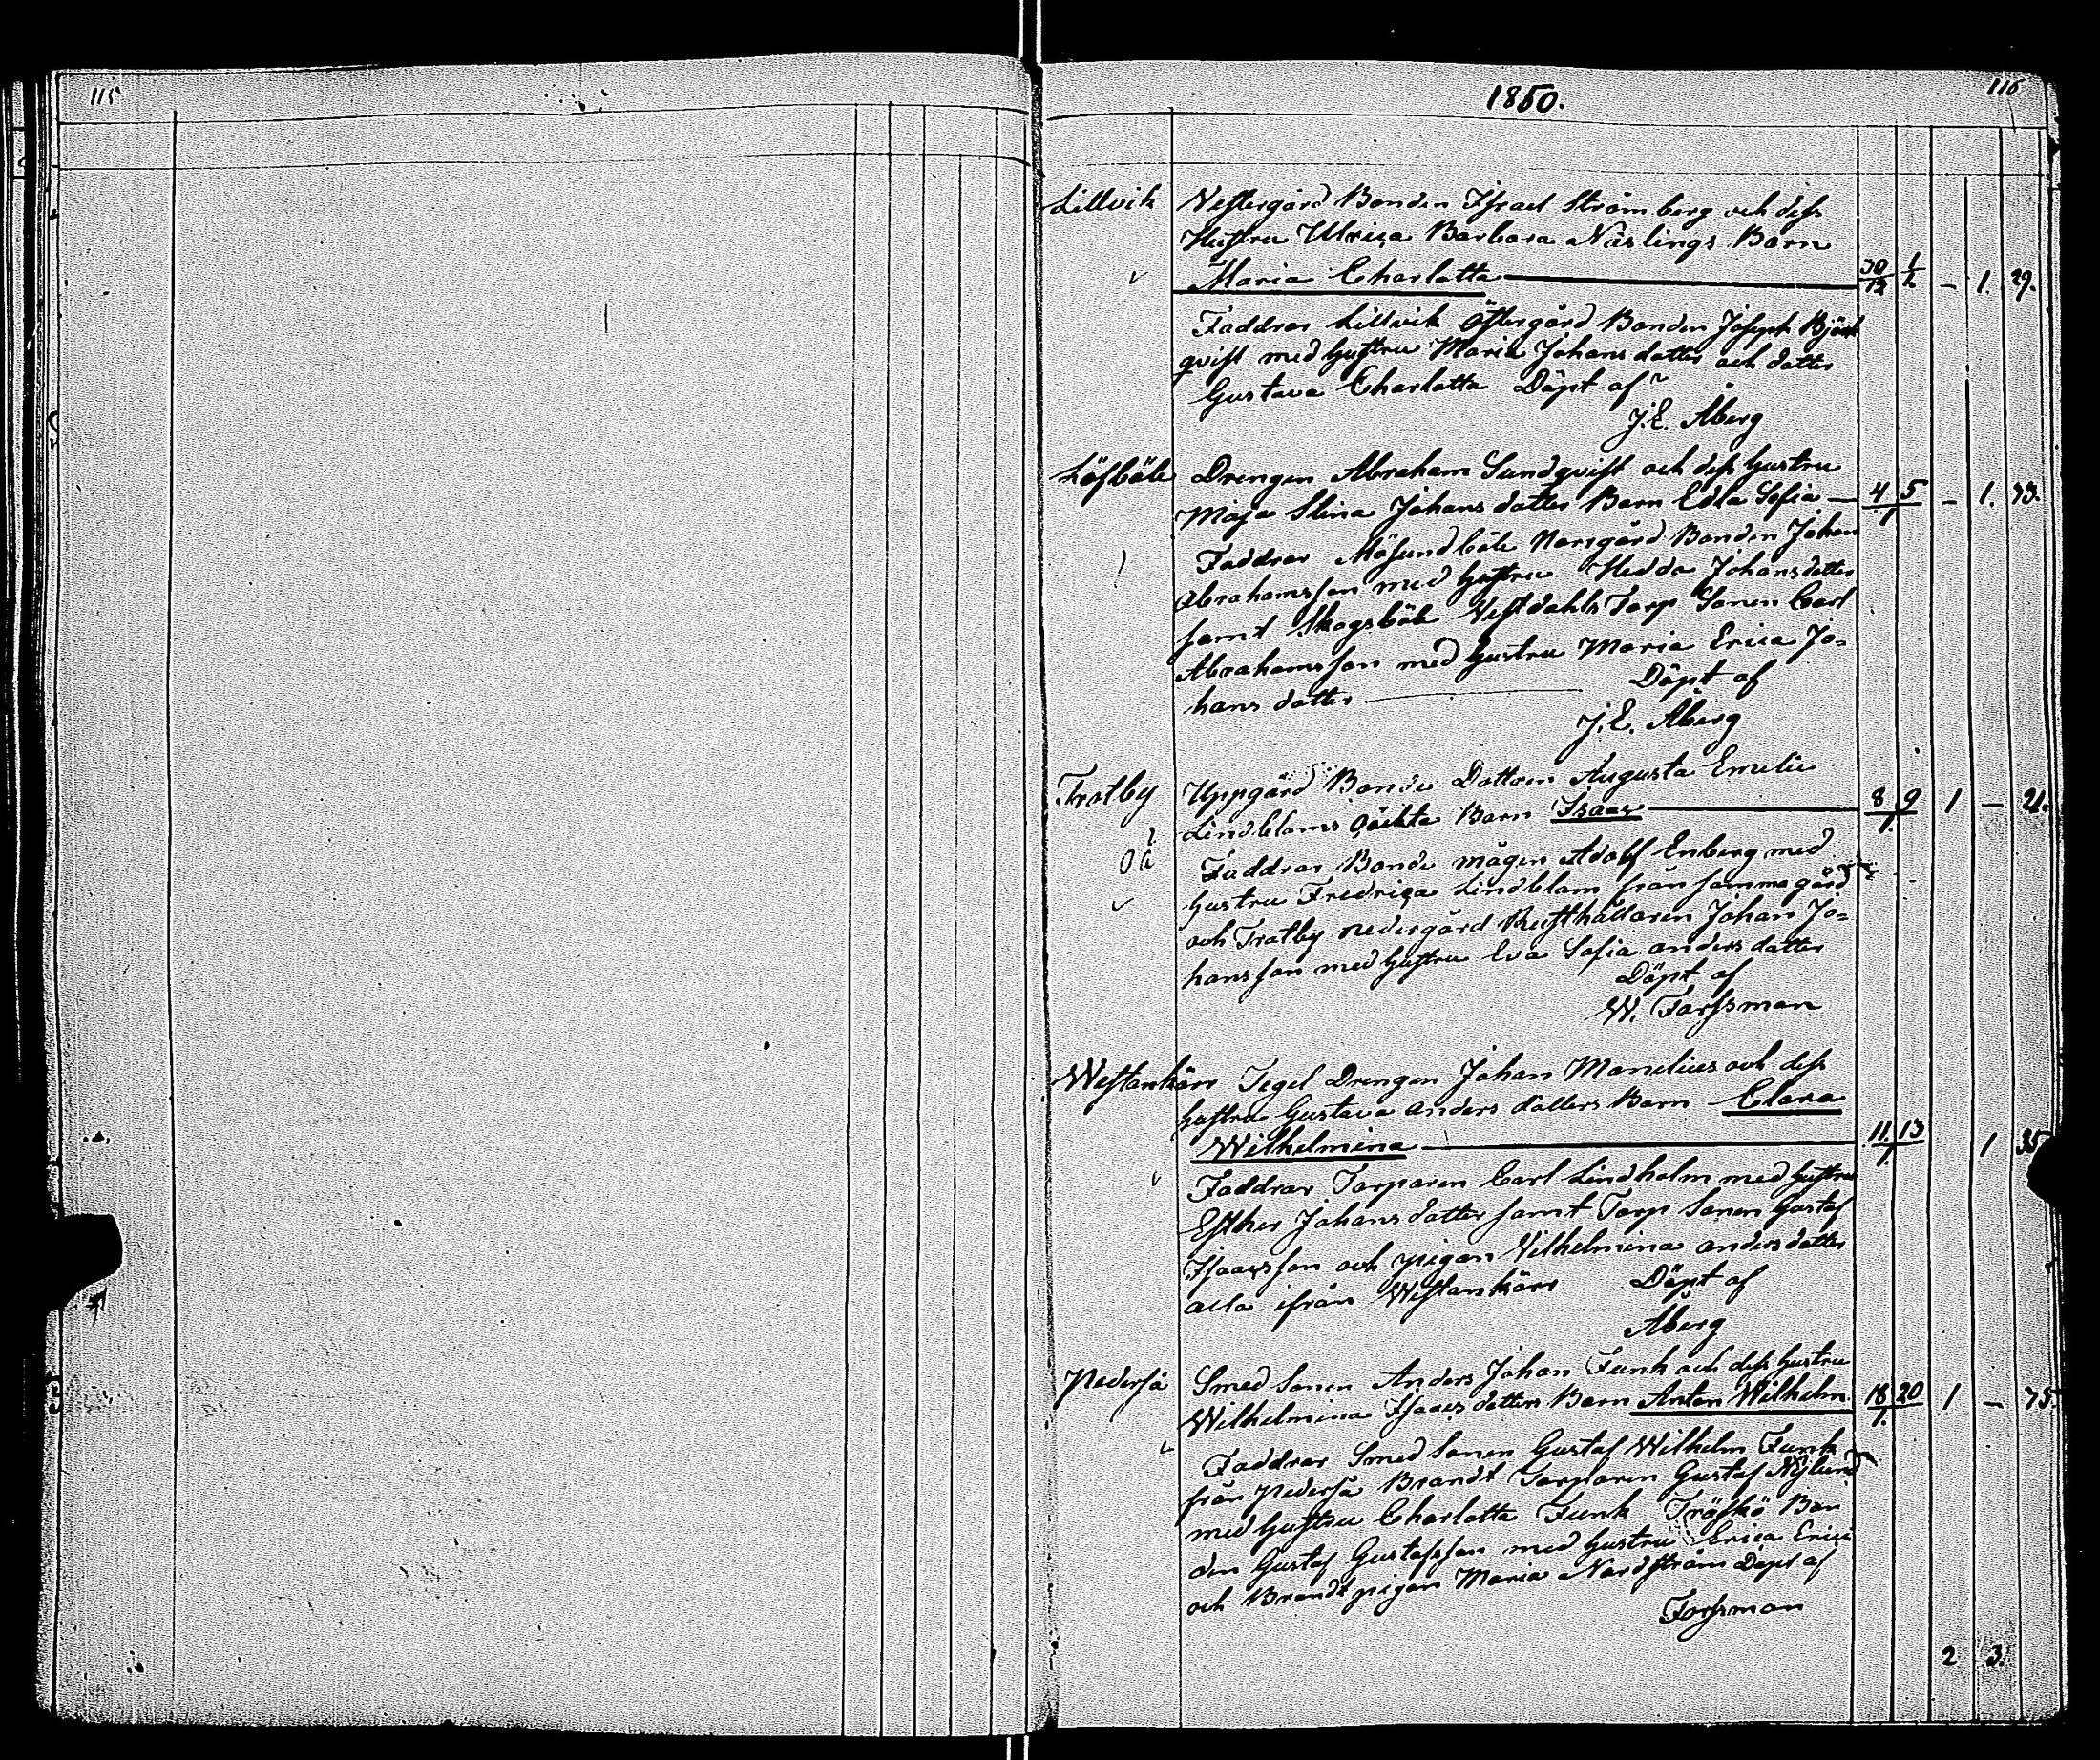 115
1850.
116
Lillvik Vestergård Bonden Israel Strömberg och dess
Hustru Ulrica Barbara Näslings Barn
Maria Charlotta 30/12 1/1 - 1. 29.
Faddrar Lillvik Östergård Bonden Joseph Björk
qvist med hustru Maria Johans dotter och dotter
Gustava Charlotta Döpt af
J.E. Åberg
Löfböle Drengen Abraham Sundqvist och dess hustru
Maja Stina Johans dotter Barn Edla Sofia 4/1 5 - 1. 33.
Faddrar Mösundböle Norrgård Bonden Johan
Abrahamsson med hustru Hedda Johansdotter
samt Skogsböle Vestdahls Torp Sonen Carl
Abrahamsson med hustru Maria Erica Jo=
hans dotter Döpt af
J.E. Åberg
Trotby Uppgård Bonde Dottren Augusta Emelie
Lindbloms oäckta Barn Isaac 8/1. 9 1 - 21.
oä Faddrar Bonde mågen Adolf Enberg med
hustru Fredrica Lindblom från samma gård
och Trotby nedergård Rusthållaren Johan Jo=
hansson med hustru Eva Sofia anders dotter
Döpt af
W. Forssman
Westankärr Tegel Drengen Johan Manelius och dess
hustru Gustava anders dotters Barn Clara
Wilhelmina 11./1. 13 1 35
Faddrar Torparen Carl Lindholm med hustru
Esther Johans dotter samt Torp Sonen Gustaf
Isaacsson och pigan Vilhelmina anders dotter
alla ifrån Westankärr Döpt af
Åberg
Pederså Smed Sonen Anders Johan Funk och dess hustru
Wilhelmina Isaacs dotters Barn Anton Wilhelm 18/1. 20 1 - 35.
Faddrar Smed Sonen Gustaf Wilhelm Funk
från Pederså Brandt Torparen Gustaf Nylund
med hustru Charlotta Funk Träskö Bon
den Gustaf Gustafsson med hustru Erica
och Brandt pigan Maria Nordström Döpt af
Forssman
2 3.